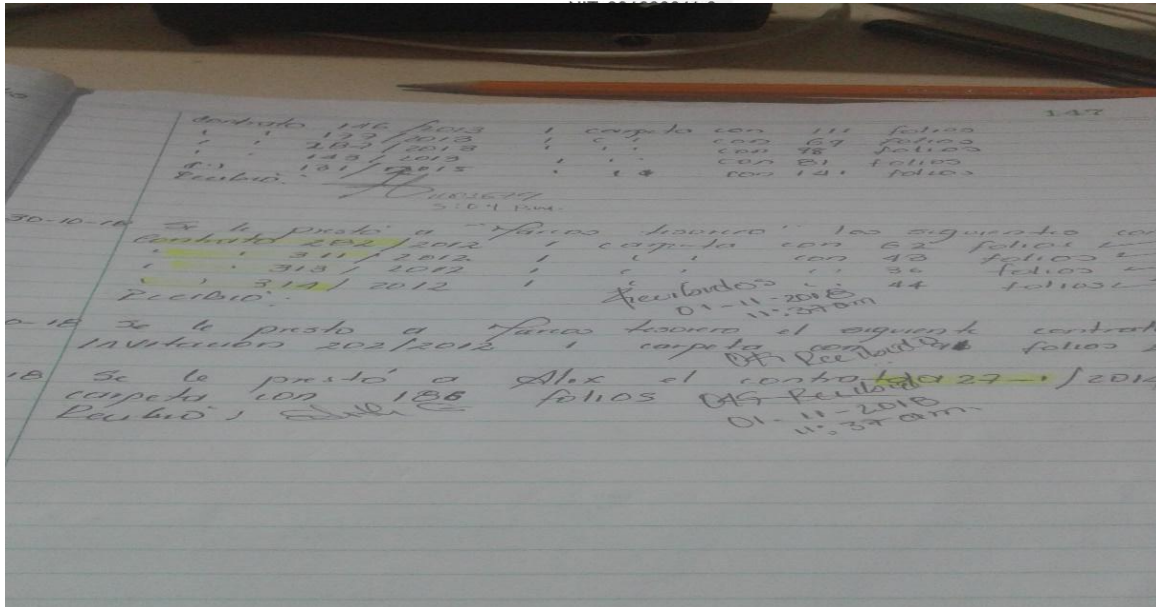 147
Contrato 146/2013 1 carpeta con 111 folios
" " /2013 1 " " con 67 folios
" " /2013 1 " " con 98 folios
" 143/2013 " " con 81 folios
" 131/2015 " " con 141 folios
Recibió:
5:04 p.m.
30-10-18 Se le prestó a Marcos tesorero los siguientes
Contrato 282/2012 1 carpeta con 62 folios
" " 311/2012 1 " " con 43 folios
" " 313/2012 1 " " " 36 folios
" " 314/2012 1 " " " 44 folios
Recibió: Recibidos
01-11-2018
11:37 am
-18 Se le presto a Marcos tesorero el siguiente contrat
Invitación 202/2012 1 carpeta con folios
18 Se le prestó a Alex el contrato 27-1/2014
carpeta con 186 folios
Recibió:
01-11-2018
11:37 am.